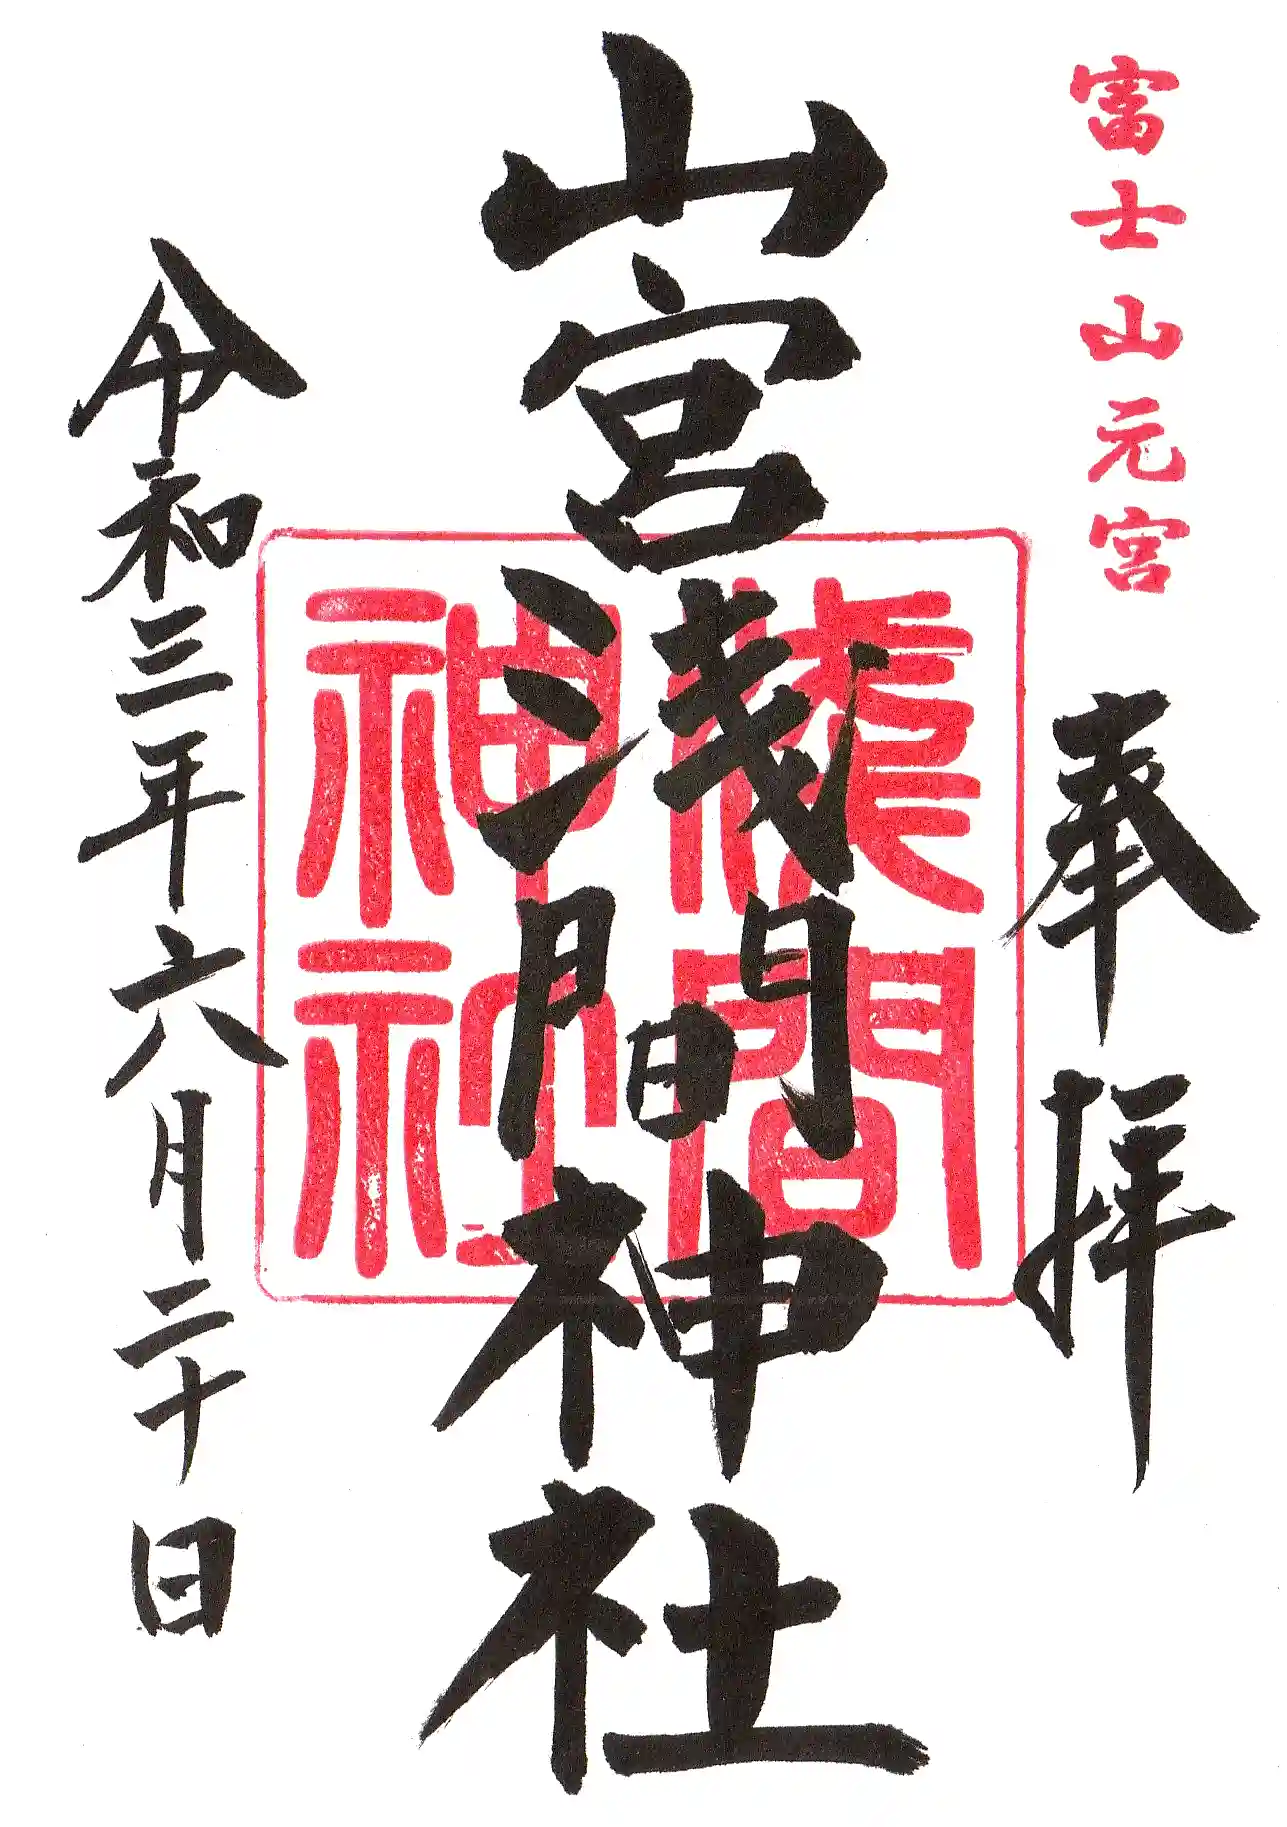 富士山元宮
奉拝
山宮浅間神社
浅間
神社
令和三年六月二十日